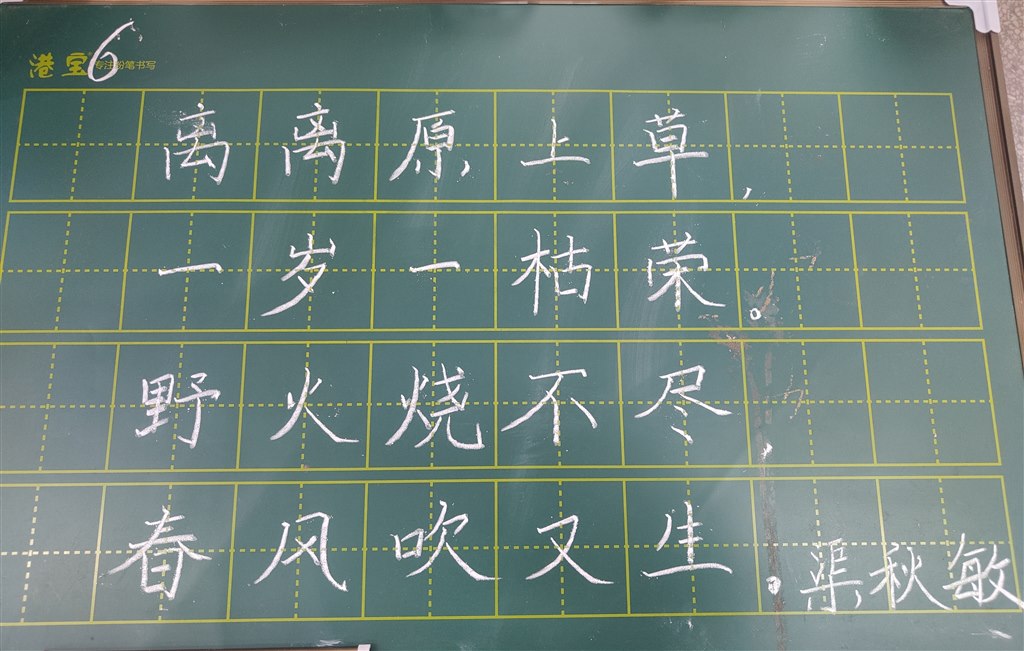 港宝 专注粉笔书写
6
离离原上草,
一岁一枯荣。
野火烧不尽,
春风吹又生。
渠秋敏